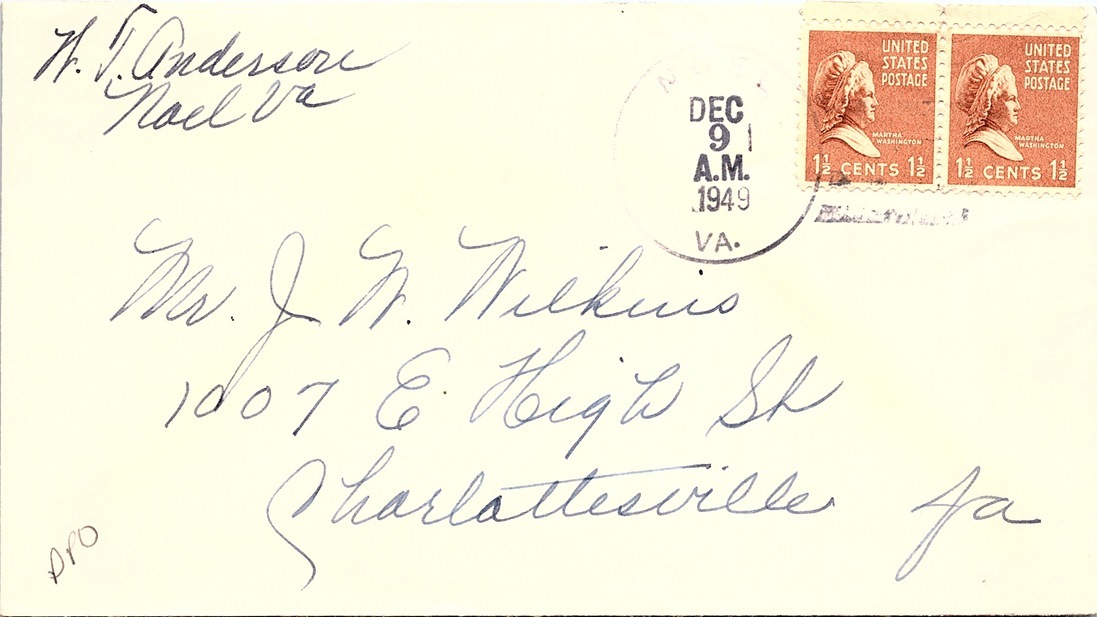 W. T. Anderson
Noel Va
NOEL
DEC
9
A.M.
1949
VA.
UNITED
STATES
POSTAGE
MARTHA
WASHINGTON
1½ CENTS 1½
UNITED
STATES
POSTAGE
MARTHA
WASHINGTON
1½ CENTS 1½
Mr. J. W. Wilkins
1007 E. High St
Charlottesville Va
DPO